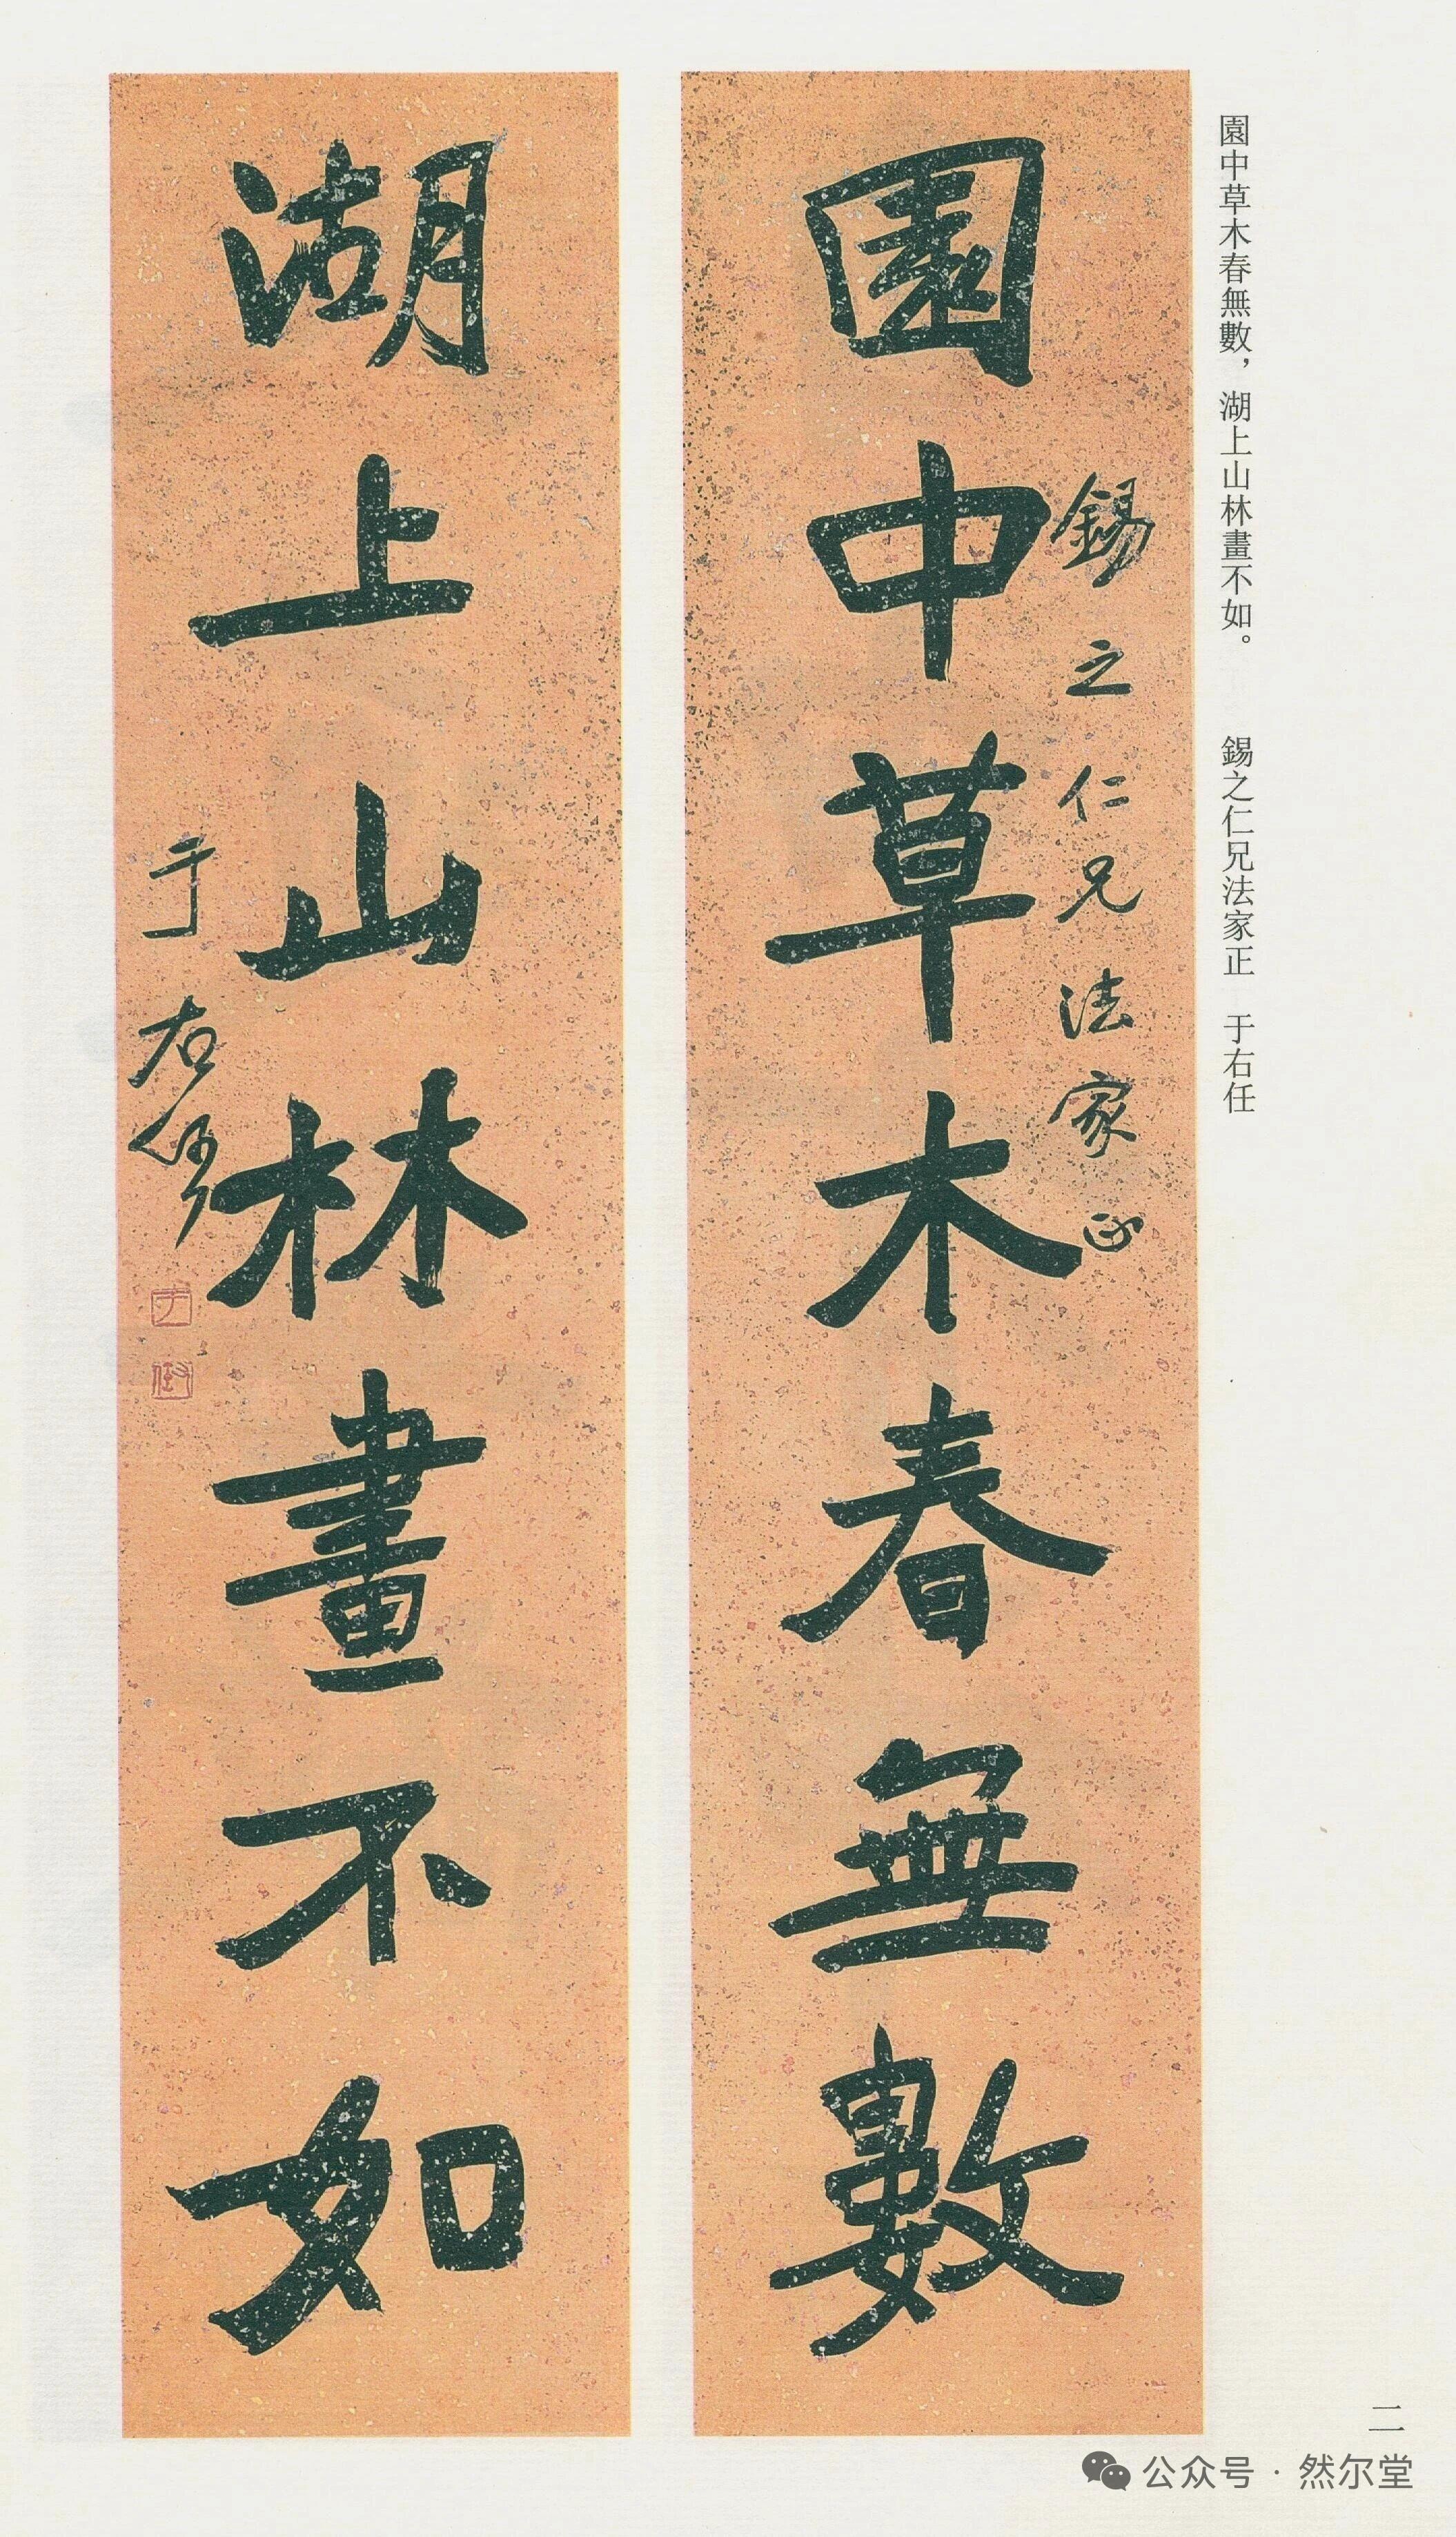 園中草木春無數，湖上山林畫不如。 錫之仁兄法家正 于右任
錫之仁兄法家正
園中草木春無數
湖上山林畫不如
于右任
二
公众号·然尔堂